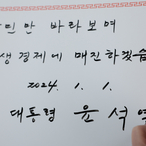 민만 바라보며
생경제에 매진하겠습
2024. 1. 1.
대통령 윤석열